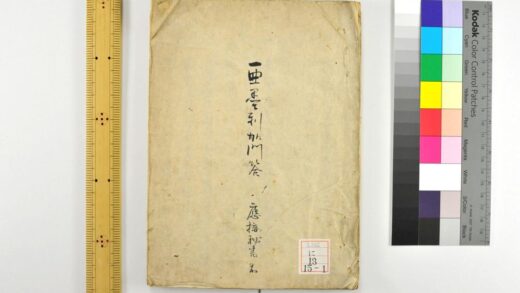 一亜墨利加問答
應接秘
に
13
15-1
Kodak
Color Control Patches
Blue
Cyan
Green
Yellow
Red
Magenta
White
3/Color
Black